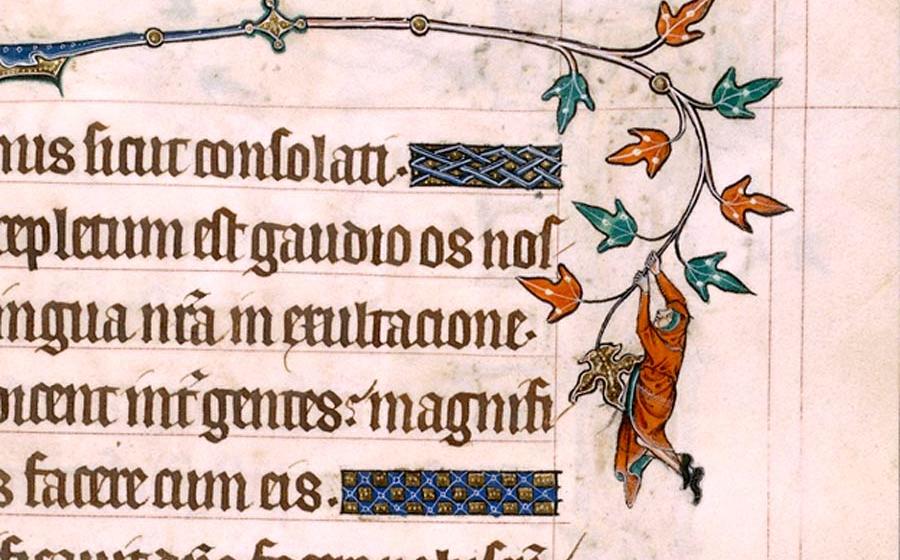 mus sicut consolati.
repletum est gaudio os nos
lingua nr̄a in exultacione.
dicent int̄ gentes: magnifi
s facere cum eis.